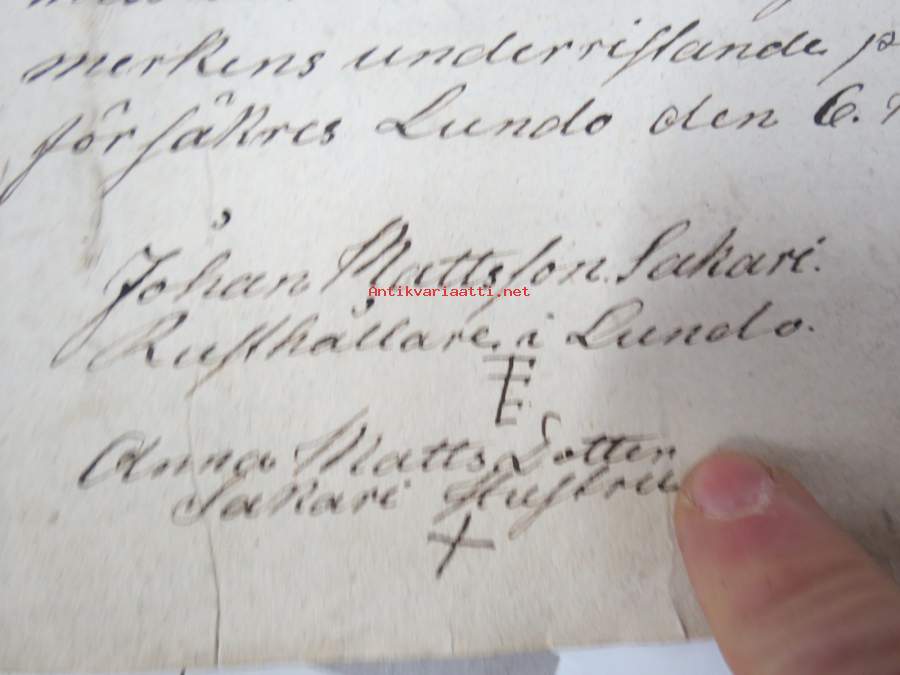 merkens underristande p
försäkres Lundo den 6.
Johan Mattsson Sakari.
Antikvariaatti.net
Rusthållare i Lundo.
Anna Matts Dotter
Sakari Hustru